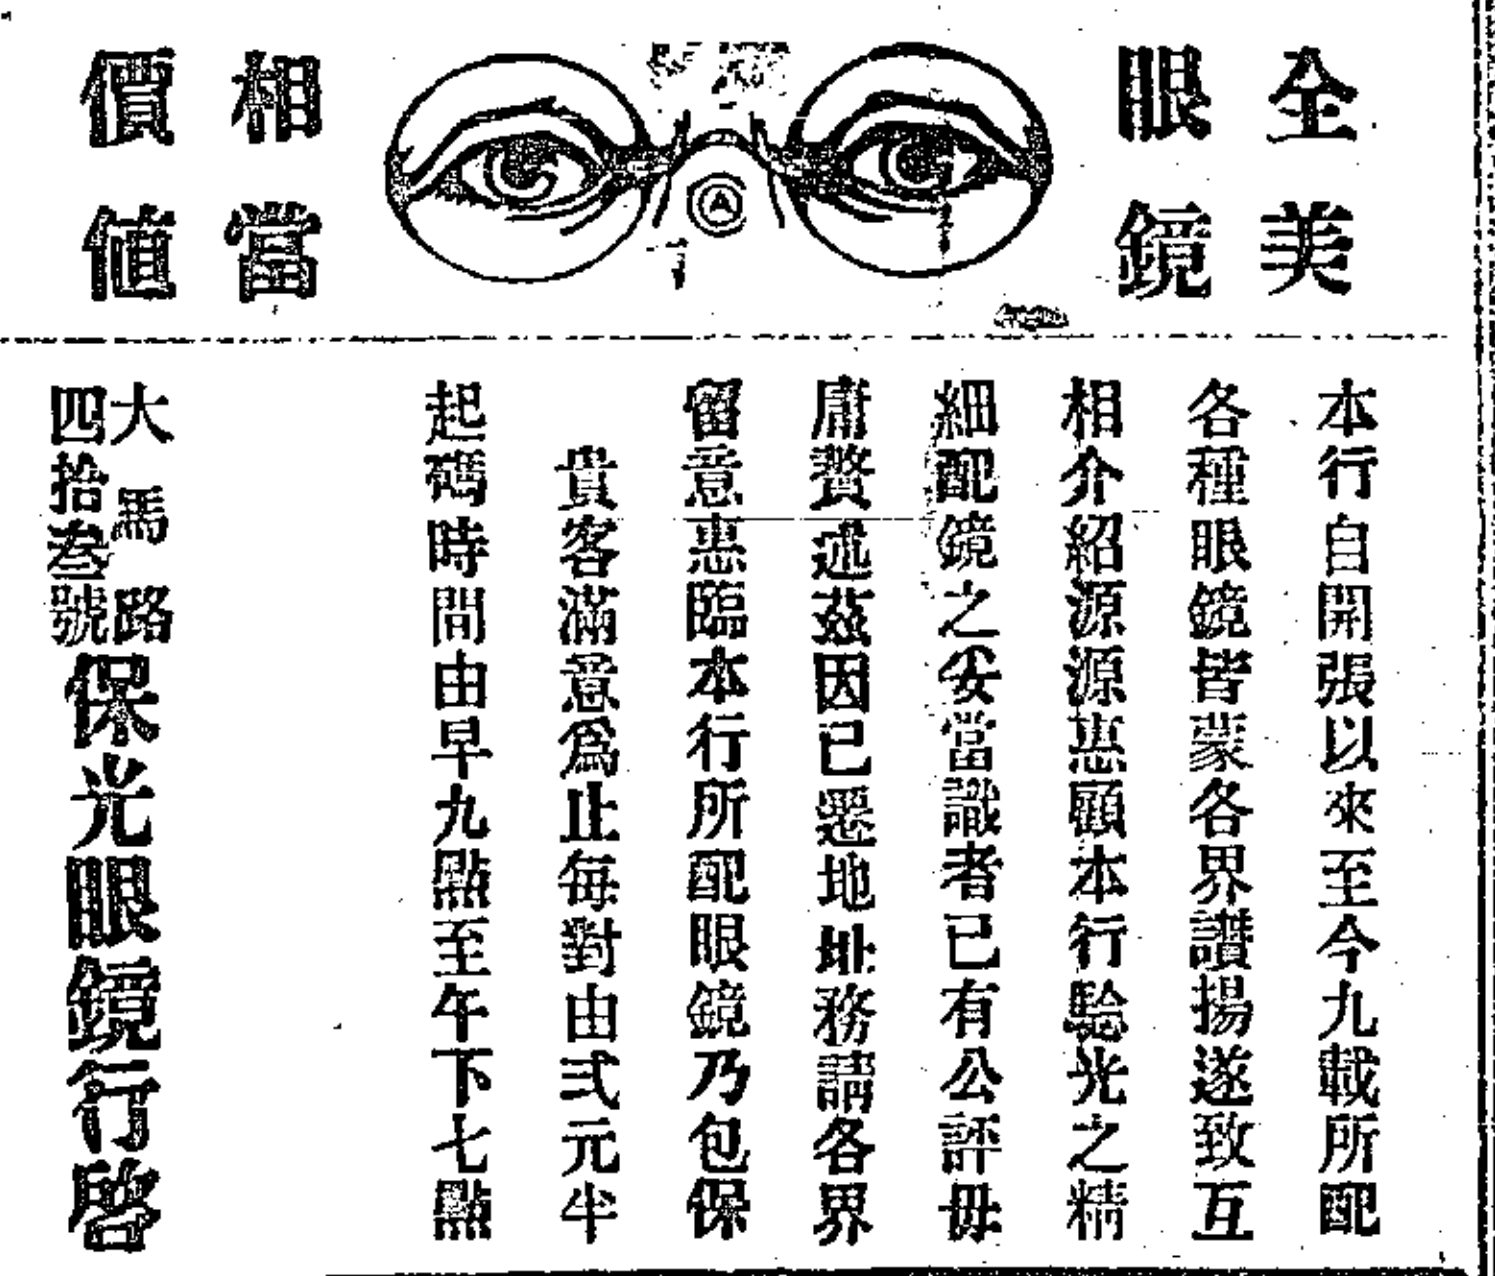 全美
眼鏡
A
相當
價值
本行自開張以來至今九載所配
各種眼鏡皆蒙各界讚揚遂致互
相介紹源源惠顧本行驗光之精
細配鏡之妥當識者已有公評毋
庸贅述茲因已遷地址務請各界
留意惠臨本行所配眼鏡乃包保
貴客滿意爲止每對由弍元半
起碼時間由早九點至午下七點
大馬路
四拾叁號
保光眼鏡行啓